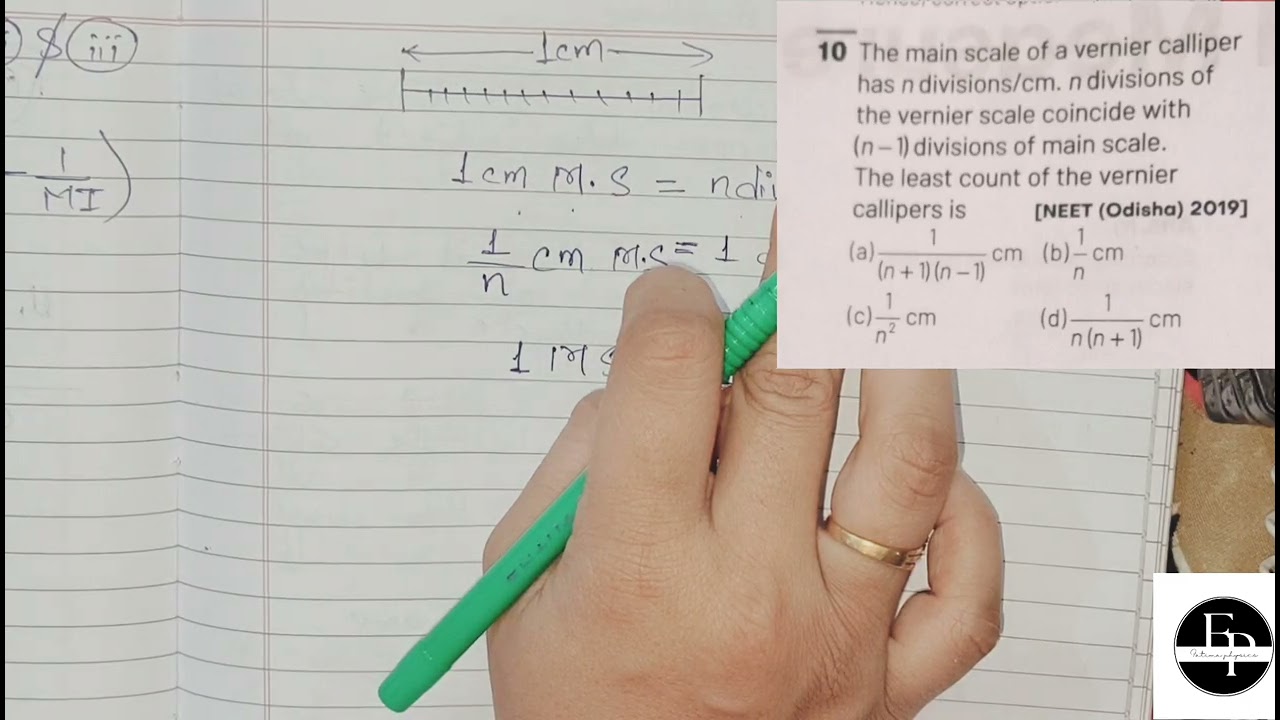 $ iii
1
MI
1cm
1cm M.S = n
1
n
cm M.S = 1
1 M
10 The main scale of a vernier calliper
has n divisions/cm. n divisions of
the vernier scale coincide with
(n – 1) divisions of main scale.
The least count of the vernier
callipers is [NEET (Odisha) 2019]
(a) 1/(n + 1)(n – 1) cm (b) 1/n cm
(c) 1/n² cm (d) 1/n(n + 1) cm
EP
Fatima physics